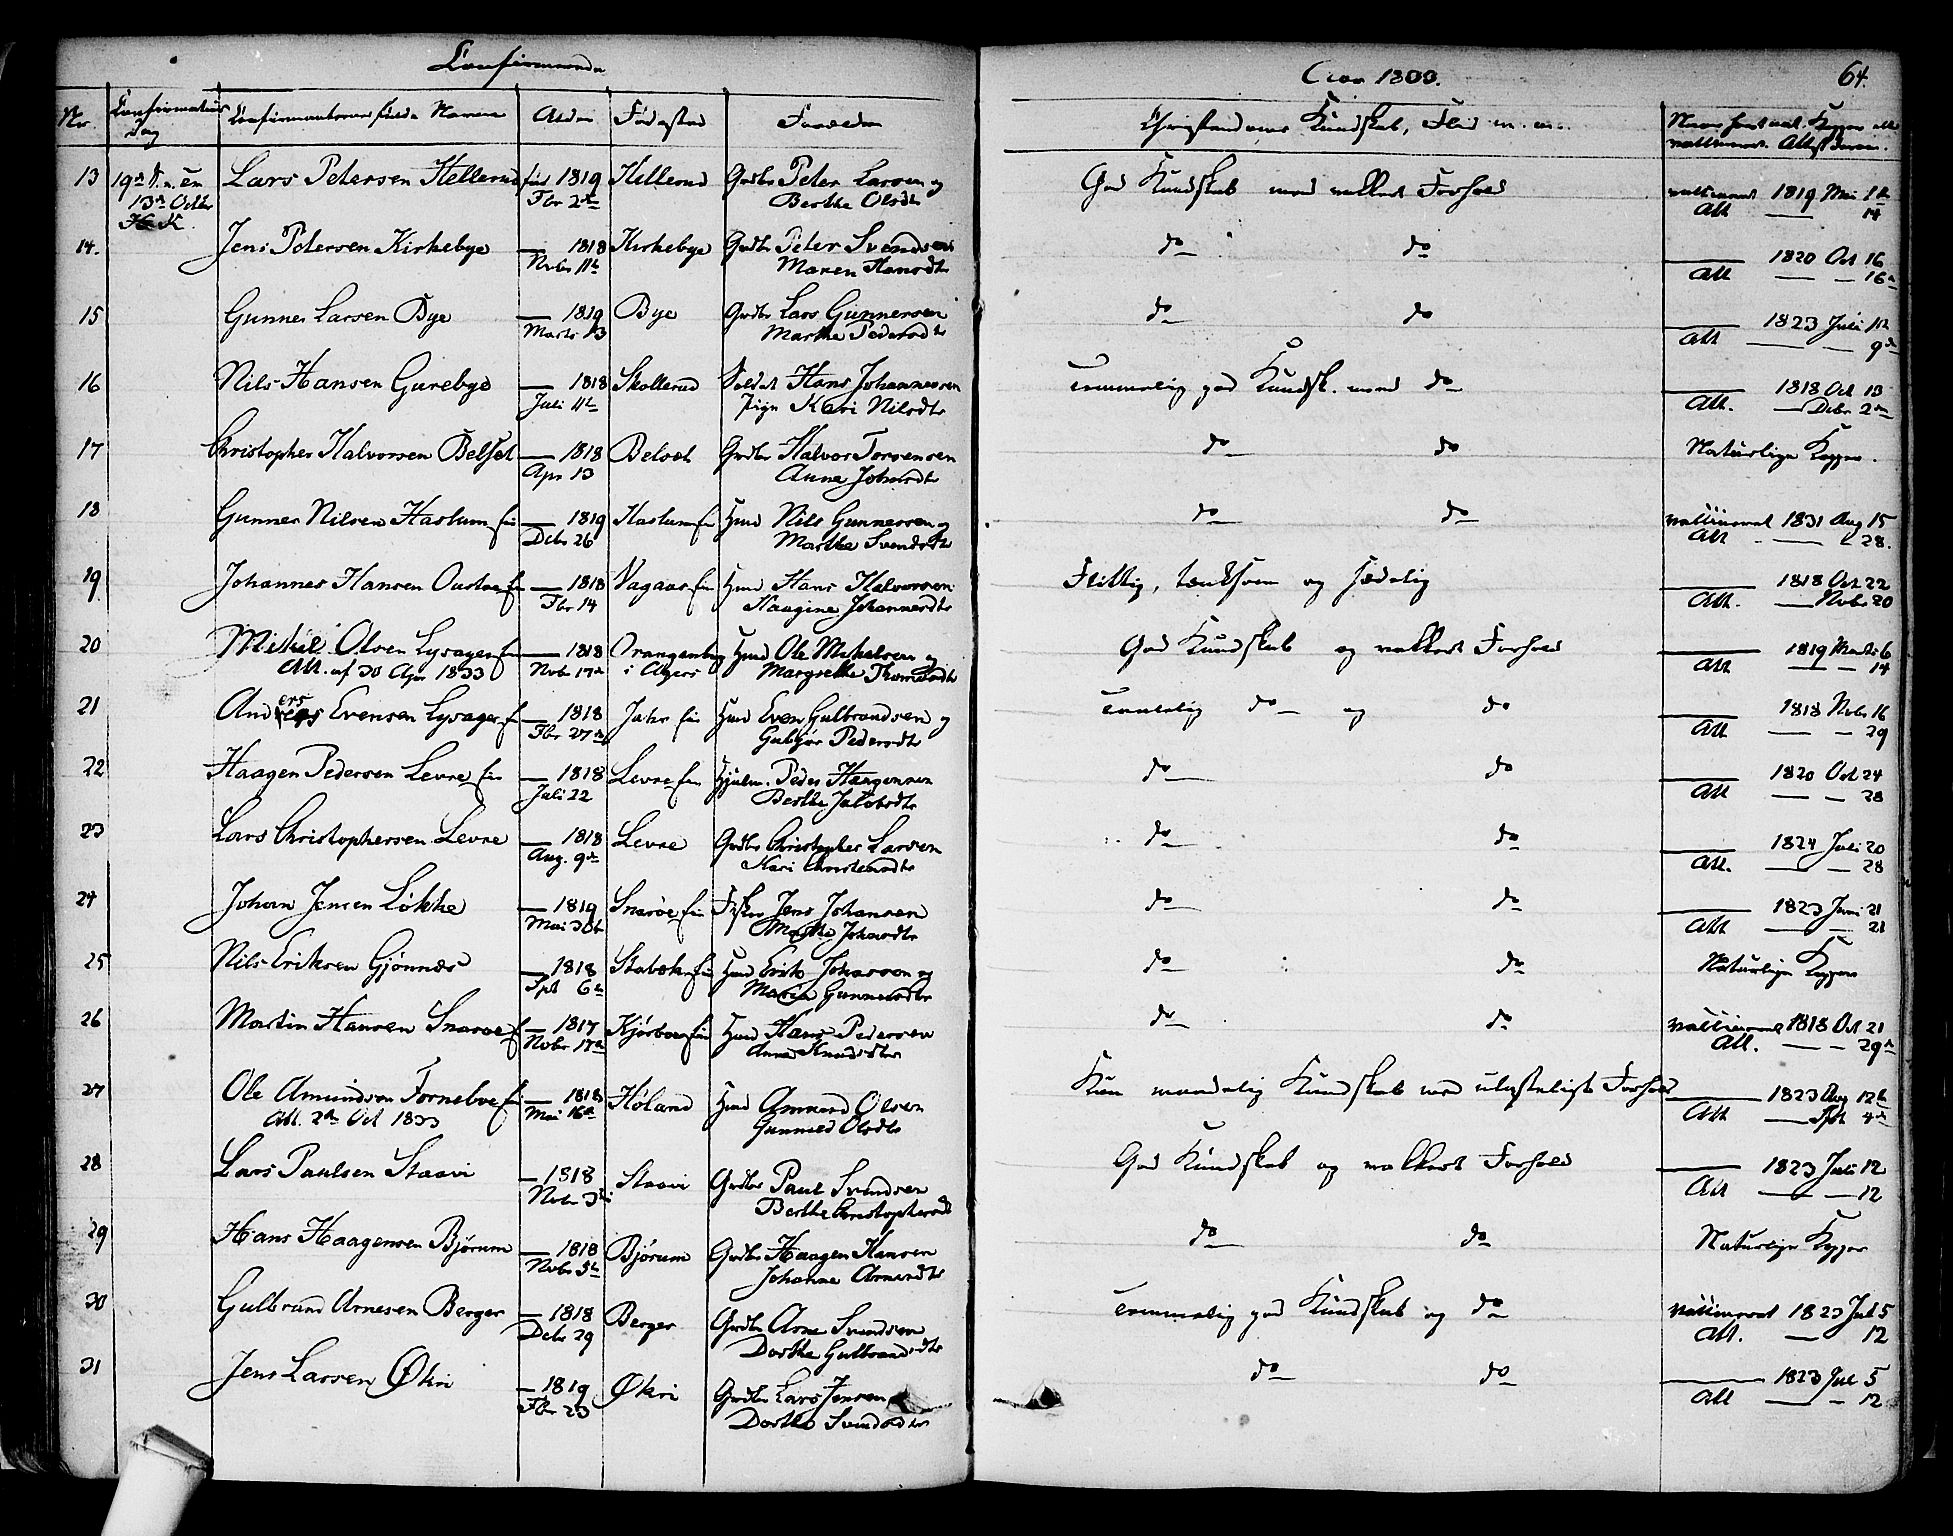 Confirmerede
Aar 1833.
64.
Nr. Confirmations Dag Confirmanternes fulde Navne Alder Fødested Forældre Christendoms Kundskab, Flid m. m. Naar havt nat. Kopper ell. vaccineret. Attest derom.
13 19de S. e. Tr. 13de Octbr H. K. Lars Petersen Hellerud fød 1819 Fbr 2den Hellerud Grdbr Peter Larsen og Berthe Olsdtr God Kundskab med vakkert Forhold vaccineret 1819 Mai 1ste Att — 14
14. Jens Petersen Kirkebye — 1818 Novbr 11te Kirkebye Grdbr Peter Svendsen Maren Hansdtr do do — 1820 Oct 16 Att — — 16de
15 Gunner Larsen Bye — 1819 Marts 13 Bye Grdbr Lars Gunnersen Marthe Pedersdtr do do — 1823 Juli 1ste Att — 9de
16 Nils Hansen Gurebye — 1818 Juli 11te Skollerud Soldat Hans Johannesen Pige Kari Nilsdtr Temmelig god Kundsk. med do — 1818 Oct 13 Att. — Debr 2den
17 Christopher Halvorsen Belset — 1818 Apr 13 Belset Grdbr Halvor Torsensen Anne Johnsdtr do do Naturlige Kopper.
18 Gunner Nilsen Haslum ei — 1819 Debr 26 Haslum ei Huusd Nils Gunnersen og Marthe Svendsdtr do do vaccineret 1831 Aug 15 Att — 28.
19 Johannes Hansen Oustøe ei — 1818 Fbr 14 Vagaas ei Huusd Hans Halvorsen Haagine Johannesdtr Flittig, tænksom og sædelig — 1818 Oct 22 Att. — Novbr 20
20 Mikkel Olsen Lysager ei Att. af 30 Apr 1833 — 1818 Nov 17de Orangenborg i Agers Huusd Ole Mikkelsen og Margrethe Thomasdtr God Kundskab og vakkert Forhold — 1819 Marts 6 Att — — 14
21 Anders Evensen Lysager ei — 1818 Fbr 27de Jahr ei Huusd Even Gulbrandsen og Gubjør Pedersdtr Temmelig do og do — 1818 Novbr 16 Att — — 29
22 Haagen Pedersen Levre ei — 1818 Juli 22 Levre ei Hjulm. Peder Haagensen Berthe Jakobsdtr do do — 1820 Oct 24 Att — — 28
23 Lars Christophersen Levre — 1818 Aug. 9de Levre Grdbr Christopher Larsen Kari Christensdtr do do — 1824 Juli 20 Att. — — 28
24 Johan Jensen Løkke — 1819 Mai 30te Snarøe ei Fisker Jens Johansen Marthe Johnsdtr do do — 1823 Juni 21 Att — — 21
25 Nils Eriksen Gjønnæs — 1818 Spt 6te Stabæk ei Huusd Erik Johnsen og Maria Gunnersdtr do do Naturlige Kopper
26 Martin Hansen Snarøe ei — 1817 Novbr 17de Kjørboe ei Huusd Hans Pedersen Anne Knudsdtr do do vaccineret 1818 Oct 21 Att. — — 29de
27 Ole Amundsen Forneboe ei Att. 2den Oct 1833 — 1818 Mai 16de Høland Huusd Amund Olsen Gunnild Olsdtr Kun maadelig Kundskab med ulasteligt Forhold — 1823 Aug 12te Att — Spt 4de
28 Lars Paulsen Staavi — 1818 Novbr 3die Staavi Grdbr Paul Svendsen Berthe Christophersdtr God Kundskab og vakkert Forhold — 1823 Juli 12 Att — — 12
29 Hans Haagensen Bjørum — 1818 Novbr 5te Bjørum Grdbr Haagen Hansen Johanne Arnesdtr do do Naturlige Kopper
30 Gulbrand Arnesen Berger — 1818 Debr 29 Berger Grdbr Arne Svendsen Dorthe Gulbrandsdtr Temmelig god Kundskab og do vaccineret 1823 Jul 5 Att. — 12
31 Jens Larsen Økri — 1819 Fbr 23 Økri Grdbr Lars Jensen Dorthe Svendsdtr do do — 1823 Jul 5 Att — — 12